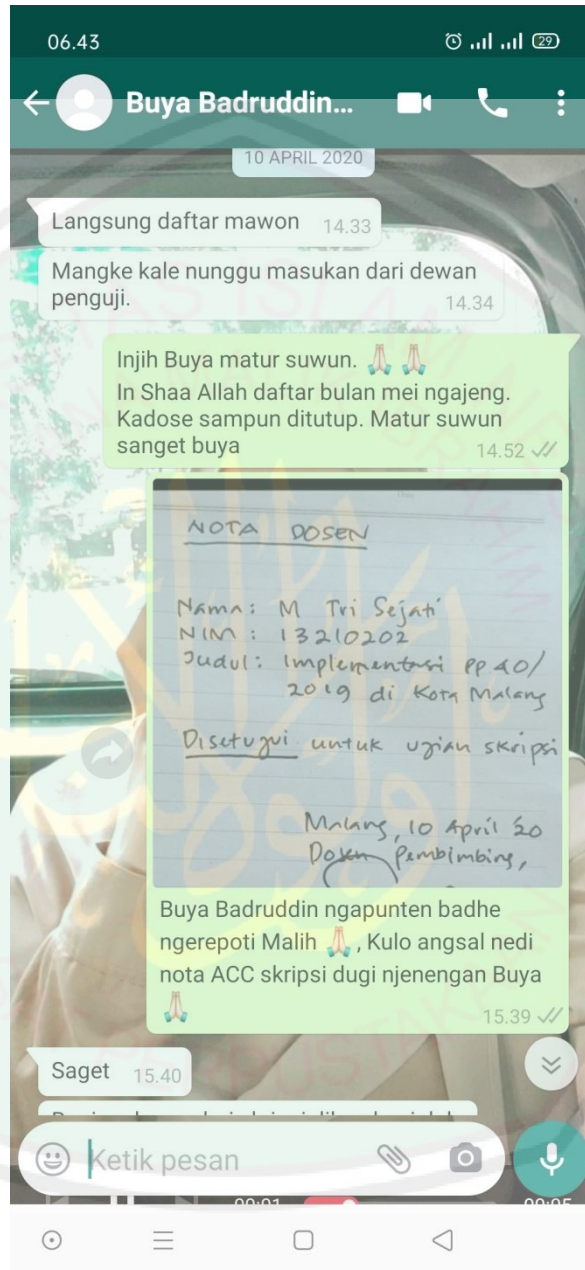 06.43
29
Buya Badruddin...
10 APRIL 2020
Langsung daftar mawon 14.33
Mangke kale nunggu masukan dari dewan
penguji. 14.34
Injih Buya matur suwun. 🙏🏻 🙏🏻
In Shaa Allah daftar bulan mei ngajeng.
Kadose sampun ditutup. Matur suwun
sanget buya 14.52
NOTA DOSEN
Nama: M Tri Sejati
NIM : 13210202
Judul: Implementasi PP 40/
2019 di Kota Malang
Disetujui untuk ujian skripsi
Malang, 10 April 20
Dosen Pembimbing,
Buya Badruddin ngapunten badhe
ngerepoti Malih 🙏🏻 , Kulo angsal nedi
nota ACC skripsi dugi njenengan Buya
🙏🏻 15.39
Saget 15.40
Ketik pesan